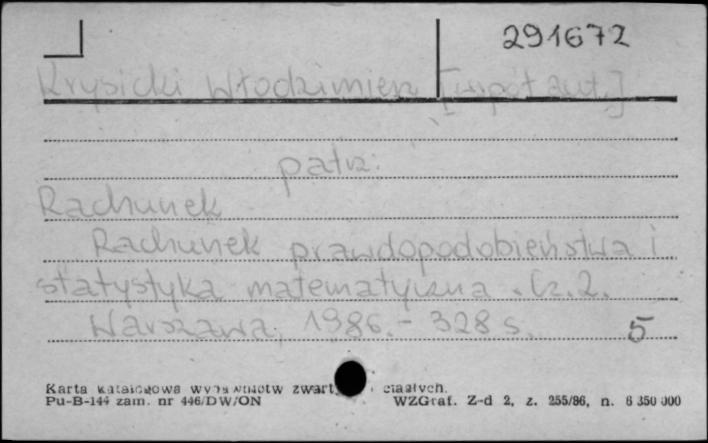 291672
Krysicki Włodzimierz [współaut.]
patrz:
Rachunek
Rachunek prawdopodobieństwa i
statystyka matematyczna. Cz. 2.
Warszawa, 1986. - 328 s. 5
Karta katalogowa wydawnictw zwart ciągłych.
Pu-B-144 zam. nr 446/DW/ON WZGraf. Z-d 2, z. 255/86, n. 6 350 000